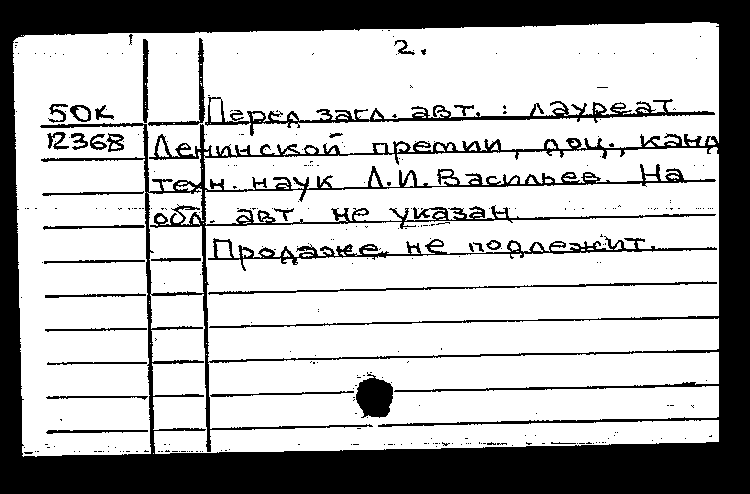 2.
50к Перед загл. авт. : лауреат
12368 Ленинской премии, доц., канд
техн. наук Л.И.Васильев. На
обл. авт. не указан
Продаже не подлежит.